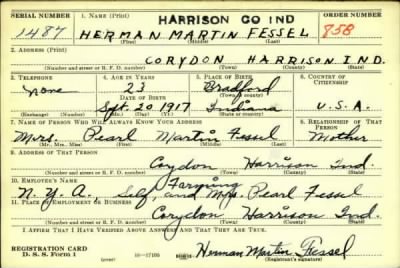 SERIAL NUMBER 1. NAME (Print) HARRISON CO IND ORDER NUMBER
1487 HERMAN MARTIN FESSEL 858
(First) (Middle) (Last)
2. ADDRESS (Print)
CORYDON HARRISON IND.
(Number and street or R. F. D. number) (Town) (County) (State)
3. TELEPHONE 4. AGE IN YEARS 5. PLACE OF BIRTH 6. COUNTRY OF CITIZENSHIP
none 23 Bradford
DATE OF BIRTH (Town or county)
Sept. 20 1917 Indiana U.S.A.
(Exchange) (Number) (Mo.) (Day) (Yr.) (State or country)
7. NAME OF PERSON WHO WILL ALWAYS KNOW YOUR ADDRESS 8. RELATIONSHIP OF THAT PERSON
Mrs. Pearl Martin Fessel Mother
(Mr., Mrs., Miss) (First) (Middle) (Last)
9. ADDRESS OF THAT PERSON
Corydon Harrison Ind.
(Number and street or R. F. D. number) (Town) (County) (State)
10. EMPLOYER'S NAME Farming
N.Y.A. Self, and Mrs. Pearl Fessel
11. PLACE OF EMPLOYMENT OR BUSINESS
Corydon Harrison Ind.
(Number and street or R. F. D. number) (Town) (County) (State)
I AFFIRM THAT I HAVE VERIFIED ABOVE ANSWERS AND THAT THEY ARE TRUE.
REGISTRATION CARD
D. S. S. Form 1 16—17105 Herman Martin Fessel
(Registrant's signature)